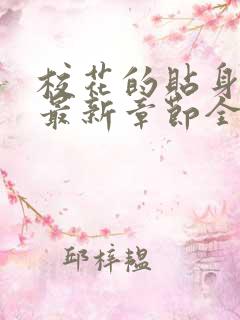 校花的贴身
最新章节全
邱梓韫